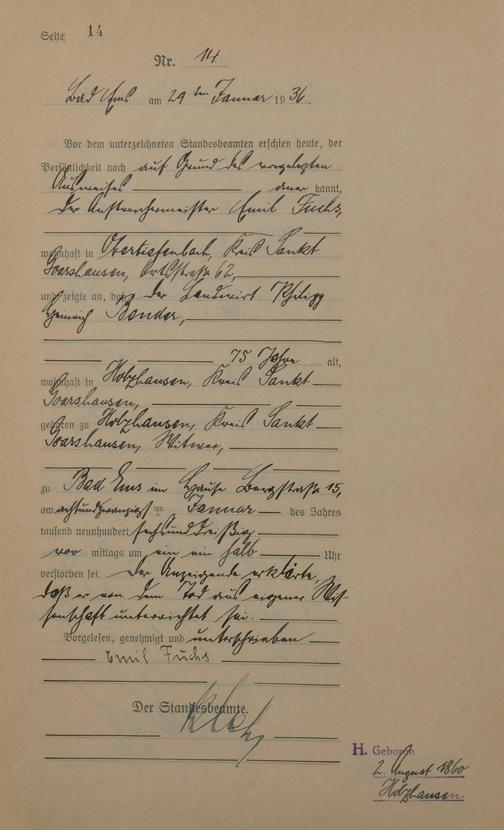 Seite 14
Nr. 14
Bad Ems am 29ten Januar 1936
Vor dem unterzeichneten Standesbeamten erschien heute, der
Persönlichkeit nach auf Grund des vorgelegten
Ausweises anerkannt,
der Anstreichermeister Emil Fuchs,
wohnhaft in Obertiefenbach, Kreis Sankt
Goarshausen, Ortsstraße 62,
und zeigte an, daß der Landwirt Philipp
Heinrich Bender,
75 Jahre alt,
wohnhaft in Holzhausen, Kreis Sankt
Goarshausen,
geboren zu Holzhausen, Kreis Sankt
Goarshausen, Witwer,
zu Bad Ems im Hause Bergstraße 15,
am achtundzwanzigsten Januar des Jahres
tausend neunhundert sechsunddreißig
vor mittags um ein ein halb Uhr
verstorben sei. Der Anzeigende erklärte,
daß er von dem Tod aus eigener Wis-
senschaft unterrichtet sei.
Vorgelesen, genehmigt und unterschrieben
Emil Fuchs
Der Standesbeamte.
H. Geboren
2. August 1860
Holzhausen